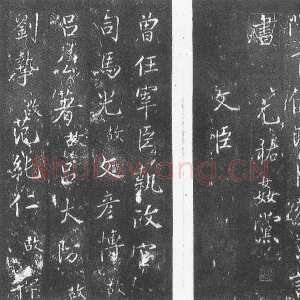 書元祐姦黨
文臣
曾任宰臣執政官
司馬光故文彦博故
吕公著故吕大防故
劉摯故范純仁故